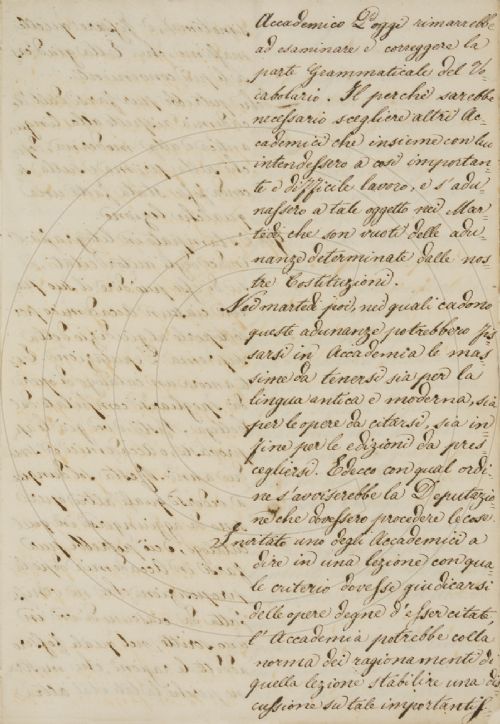 Accademico Poggi rimarrebbe
ad esaminare e correggere la
parte Grammaticale del Vo=
cabolario. Il perchè sarebbe
necessario scegliere altri Ac=
cademici che insieme con lui
intendessero a così importan=
te e difficile lavoro, e s'adu=
nassero a tale oggetto nei Mar=
tedì, che son vuoti delle adu=
nanze determinate dalle nos=
tre Costituzioni.
Nei martedì poi, nei quali cadono
queste adunanze potrebbero fis=
sarsi in Accademia le mas=
sime da tenersi sia per la
lingua antica e moderna, sia
per le opere da citarsi, sia in
fine per le edizioni da pres=
cegliersi. Ed ecco con qual ordi=
ne s'avviserebbe la Deputazio=
ne che dovessero procedere le cose
Invitato uno degli Accademici a
dire in una lezione con qua
le criterio dovesse giudicarsi
delle opere degne d'esser citate,
l'Accademia potrebbe colla
norma dei ragionamenti di
quella lezione stabilire una dis
cussione su tale importantis=